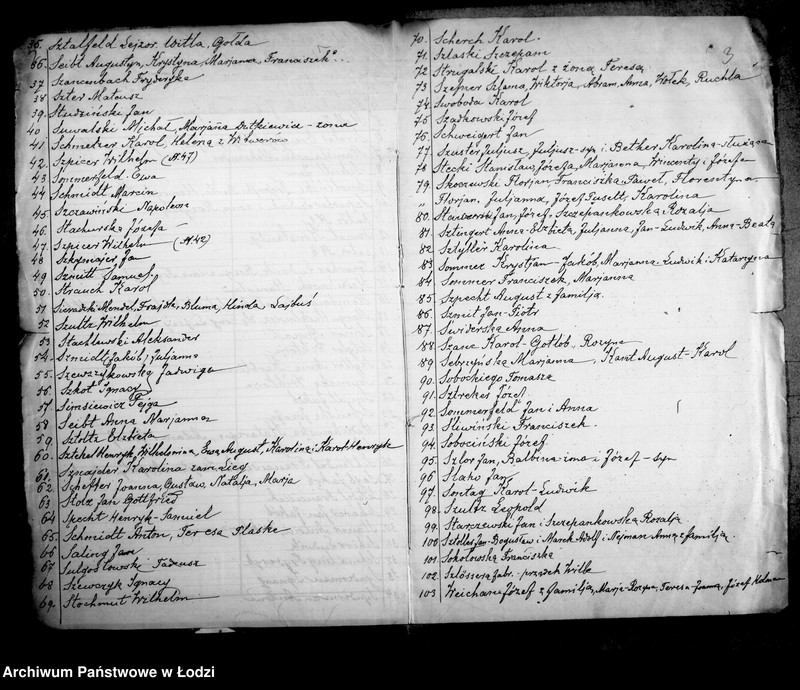 35. Sztalfeld Lejzor, Witla, Gołda
36. Seibt Augustyn, Krystyna, Marjanna, Franciszek
37. Szancenbach Fryderyka
38. Szter Mateusz
39. Studziński Jan
40. Suwalski Michał, Marjanna Dutkiewicz - żona
41. Schmelzer Karol, Helena z Witwerów
42. Szpicer Wilhelm (N.47)
43. Sommerfeld Ewa
44. Schmidt Marcin
45. Szczawiński Napoleon
46. Stachurska Józefa
47. Szpicer Wilhelm (N.42)
48. Jan
49. Szmitt Samuel
50. Strauch Karol
51. Sieradzki Mendel, Frajda, Bluma, Hinda, Lajbuś
52. Szultz Wilhelm
53. Stachlewski Aleksander
54. Szmidt Jakób, Juljanna
55. Szewczykowska Jadwiga
56. Szkot Ignacy
57. Simsiewicz Fejga
58. Seibt Anna Marjanna
59. Sztolta Elżbieta
60. Sztekel Henryk, Wilhelmina, Ewa, August, Karolina i Karol-Henryk
61. Sznajder Karolina
62. Scheffer Joanna, Gustaw, Natalja, Marja
63. Stolz Jan Gottfried
64. Specht Henryk-Samuel
65. Schmidt Anton, Teresa Plaske
66. Saling Jan
67. Sulgostowski Tadeusz
68. Szewczyk Ignacy
69. Stochmut Wilhelm
3
70. Scherch Karol.
71. Szlaski Szczepan
72. Strugalski Karol z żoną Teresą
73. Szefner Szlama, Wiktorja, Abram, Anna, Wołek, Ruchla
74. Swoboda Karol
75. Szadkowski Józef
76. Schweigert Jan
77. Szuster Juljusz, Juljusz-syn i Bether Karolina-służąca
78. Stecki Stanisław, Józefa, Marjanna, Wincenty i Józefa
79. Skoczewski Florjan, Franciszka, Paweł, Florentyna
„ Florjan, Juljanna, Józef, Karolina
80. Jan, Józef, Szczepankowska Rozalja
81. Sztengert Anna-Elżbieta, Juljanna, Jan-Ludwik, Anna-Beata
82. Sedyller Karolina
83. Sommer Krystjan-Jakób, Marjanna, Ludwik i Katarzyna
84. Sommer Franciszek, Marjanna
85. Szpecht August z familją.
86. Szmit Jan-Piotr
87. Swiderska Anna
88. Szanc Karol-Gotlob, Rozyna
89. Sebzyńska Marjanna, Karol August-Karol
90. Sobockiego Tomasza
91. Sztrekes Józef
92. Sommerfeld Jan i Anna
93. Śliwiński Franciszek.
94. Sobociński Józef
95. Szlor Jan, Balbina żona i Józef - syn
96. Słaho Jan
97. Sontag Karol-Ludwik
98. Szultz Leopold
99. Starczewski Jan i Szczepankowska Rozalja
100. Sztolles Jan-Bogusław i Marek Adolf i Nejman Anna z familją
101. Sokołowska Franciszka
102. Szlössera fabr. - prządek Wilk
103. Weichan Józef z familją, Marja-Rozyna, Teresa-Joanna, Józef Kalman
Archiwum Państwowe w Łodzi